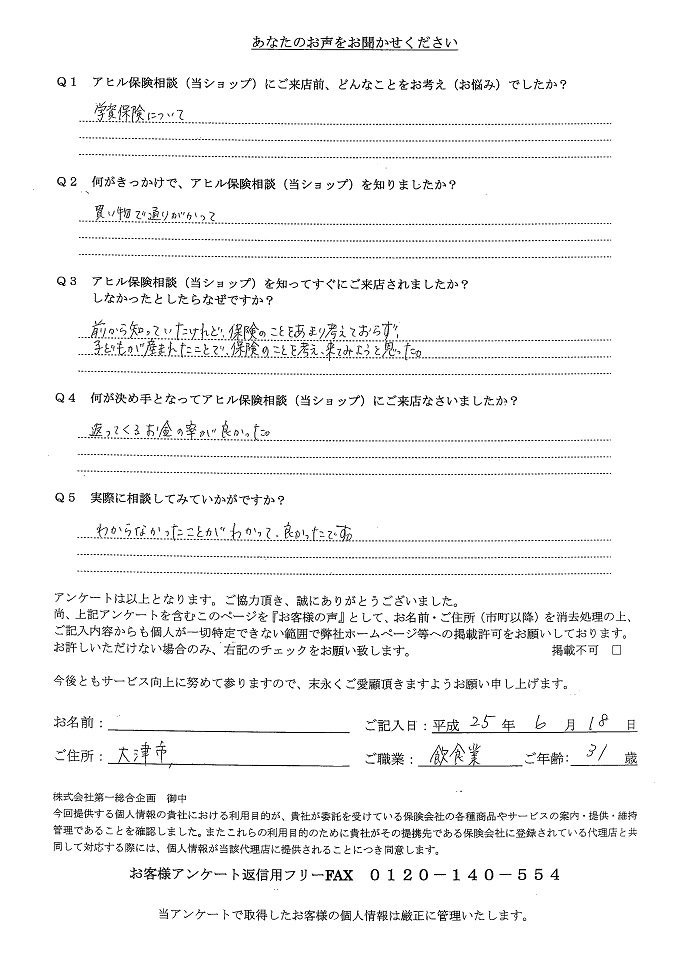 あなたのお声をお聞かせください
Q1 アヒル保険相談（当ショップ）にご来店前、どんなことをお考え（お悩み）でしたか？
学資保険について
Q2 何がきっかけで、アヒル保険相談（当ショップ）を知りましたか？
買い物で通りがかって
Q3 アヒル保険相談（当ショップ）を知ってすぐにご来店されましたか？
しなかったとしたらなぜですか？
前から知っていたけれど、保険のことをあまり考えておらず、
子どもが産まれたことで、保険のことを考え、来てみようと思った。
Q4 何が決め手となってアヒル保険相談（当ショップ）にご来店なさいましたか？
返ってくるお金の率が良かった。
Q5 実際に相談してみていかがですか？
わからなかったことがわかって、良かったです。
アンケートは以上となります。ご協力頂き、誠にありがとうございました。
尚、上記アンケートを含むこのページを『お客様の声』として、お名前・ご住所（市町以降）を消去処理の上、
ご記入内容からも個人が一切特定できない範囲で弊社ホームページ等への掲載許可をお願いしております。
お許しいただけない場合のみ、右記のチェックをお願い致します。 掲載不可 □
今後ともサービス向上に努めて参りますので、末永くご愛顧頂きますようお願い申し上げます。
お名前： ご記入日：平成 25 年 6 月 18 日
ご住所： 大津市 ご職業： 飲食業 ご年齢： 31 歳
株式会社第一総合企画 御中
今回提供する個人情報の貴社における利用目的が、貴社が委託を受けている保険会社の各種商品やサービスの案内・提供・維持
管理であることを確認しました。またこれらの利用目的のために貴社がその提携先である保険会社に登録されている代理店と共
同して対応する際には、個人情報が当該代理店に提供されることにつき同意します。
お客様アンケート返信用フリーFAX 0120－140－554
当アンケートで取得したお客様の個人情報は厳正に管理いたします。